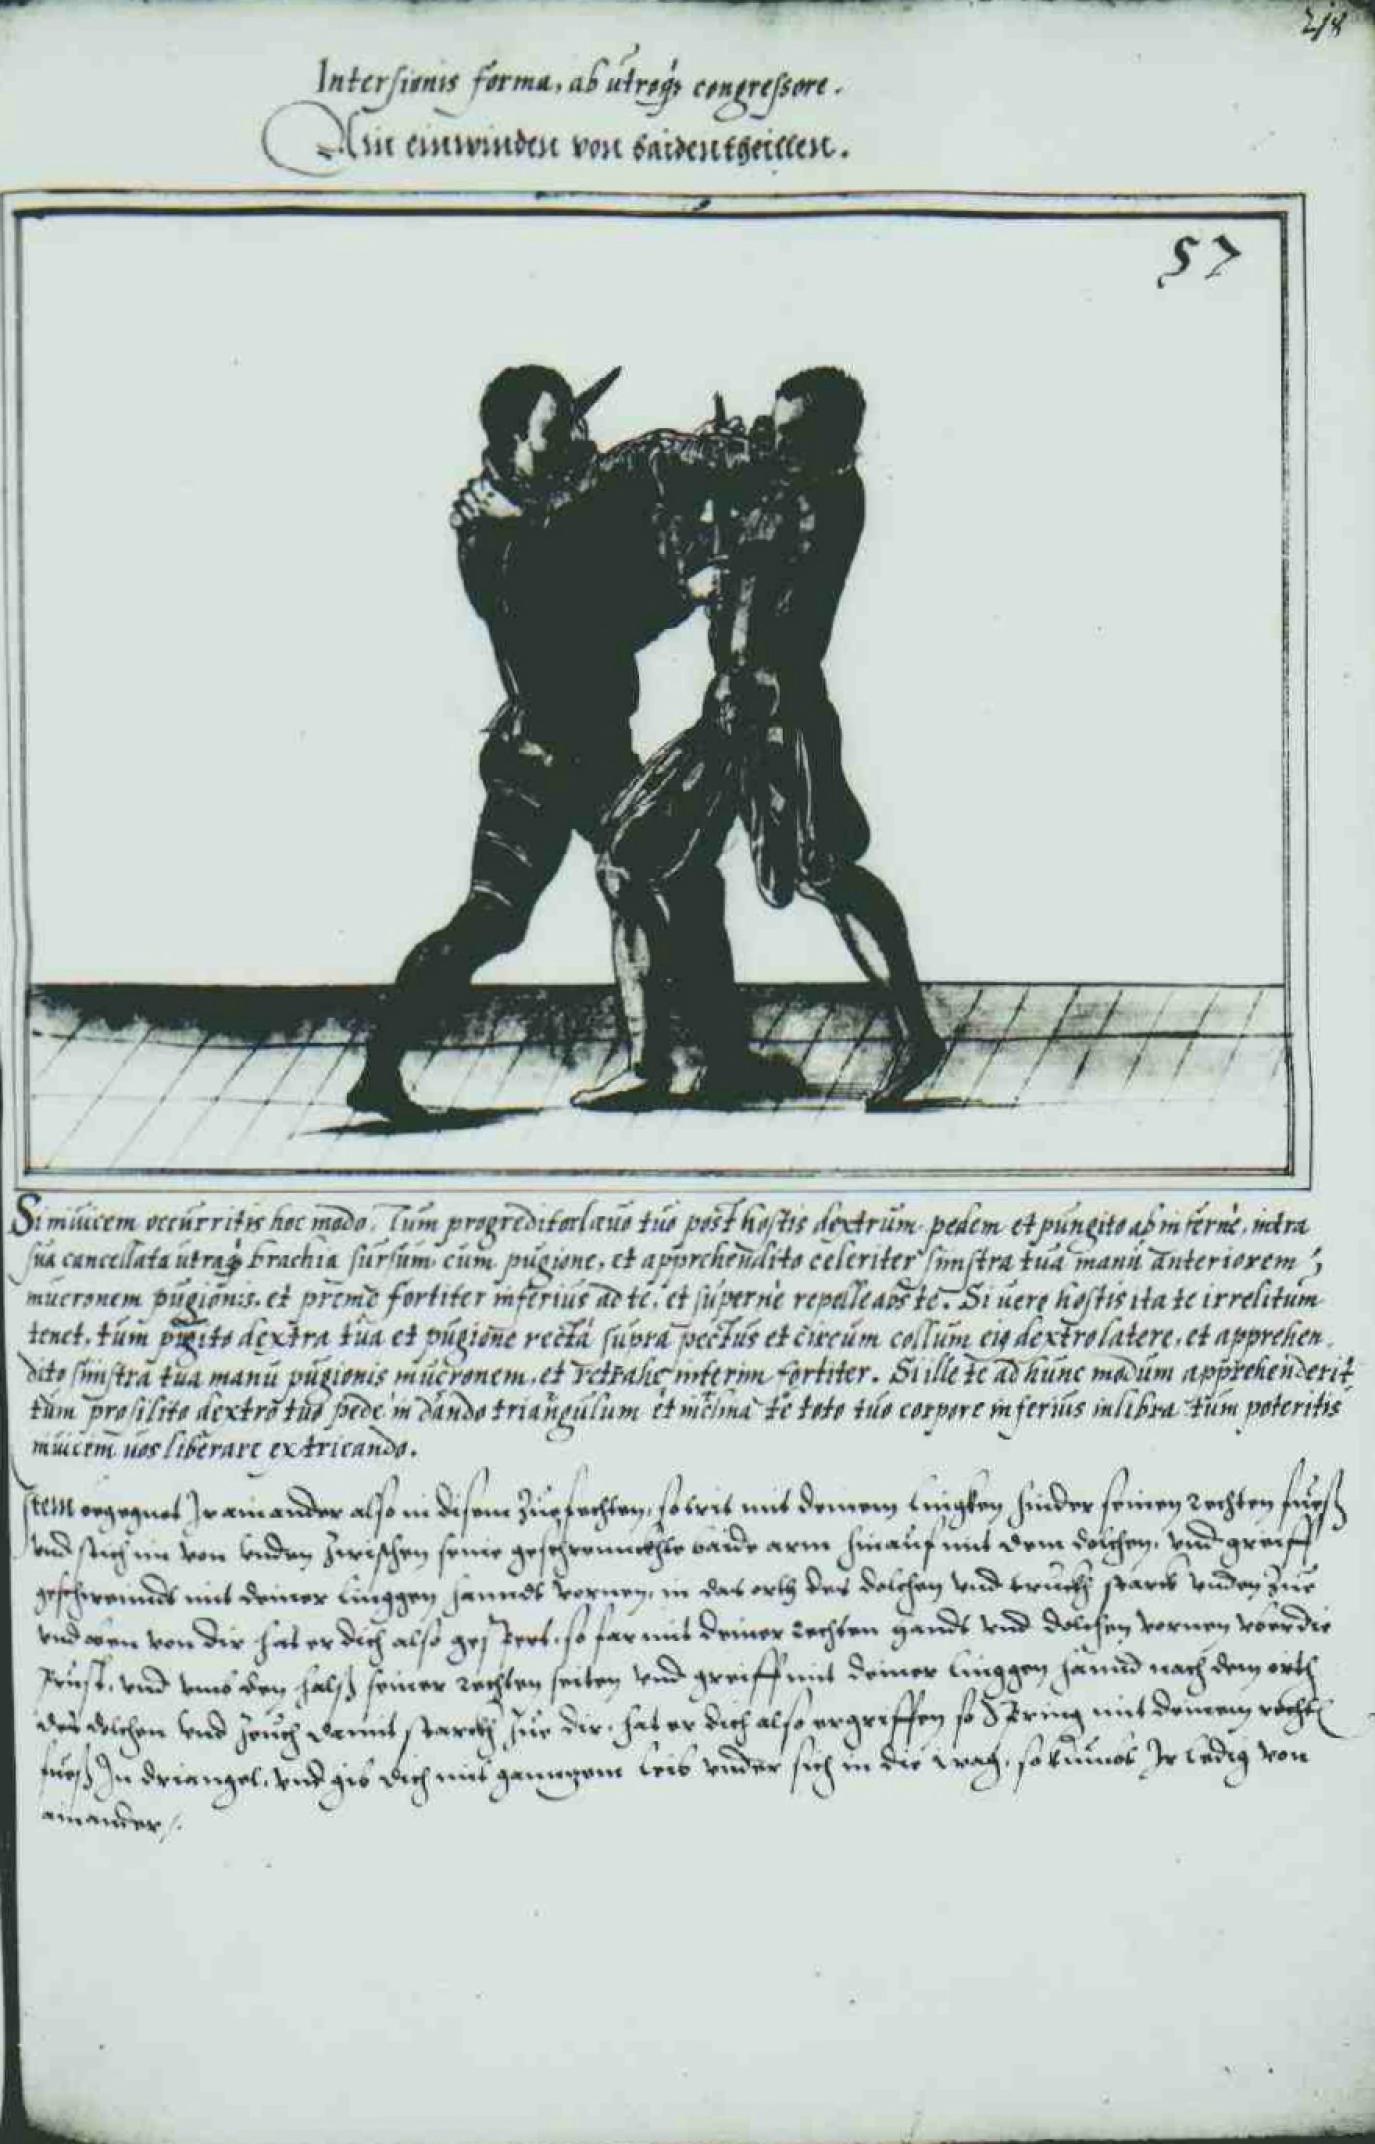 218
Intersionis forma, ab utroq₃ congressore.
Ain einwinden von baidentheillen.
57
Si inuicem occurritis hoc modo. Tum progreditor læuo tuo post hostis dextrum pedem et pungito ab infernè, intra
sua cancellata utraq₃ brachia sursum cum pugione, et apprehendito celeriter sinistra tua manu anteriorem
mucronem pugionis. et preme fortiter inferius ad te, et supernè repelle abs te. Si uero hostis ita te irretitum
tenet, tum dextra tua et pugione recta supra pectus et circum collum eiq dextro latere, et apprehen
dito sinistra tua manu pugionis mucronem, et retrahe interim fortiter. Si ille te ad hunc modum apprehenderit
tum prosilito dextro tuo pede in dando triangulum et inclina te toto tuo corpore inferius in libra tum poteritis
inuicem uos liberare extricando.
Item begegnet Ir ainander also in disem Zuofechten, so trit mit deinem linggken hinder seinen rechten fuoß
vnd stich im von vnden zwischen seine geschrenckhte baide arm hinauf mit dem dolchen, vnd greiff
geschwindt mit deiner linggen hanndt vornen, in das orth des dolchen vnd truckh starck vnden Zue
vnd oben von dir hat er dich also gespert, so far mit deiner rechten handt vnd dolchen vornen vber die
Brust, vnd vmb den halß seiner rechten seiten vnd greiff mit deiner linggen hannd nach dem orth
des dolchen vnd zeuch damit starckh zue dir, hat er dich also ergriffen so Spring mit deinem rechten
fueß In driangel, vnd gib dich mit ganntzem leib vnder sich in die wag, so kumbt Ir ledig von
ainander